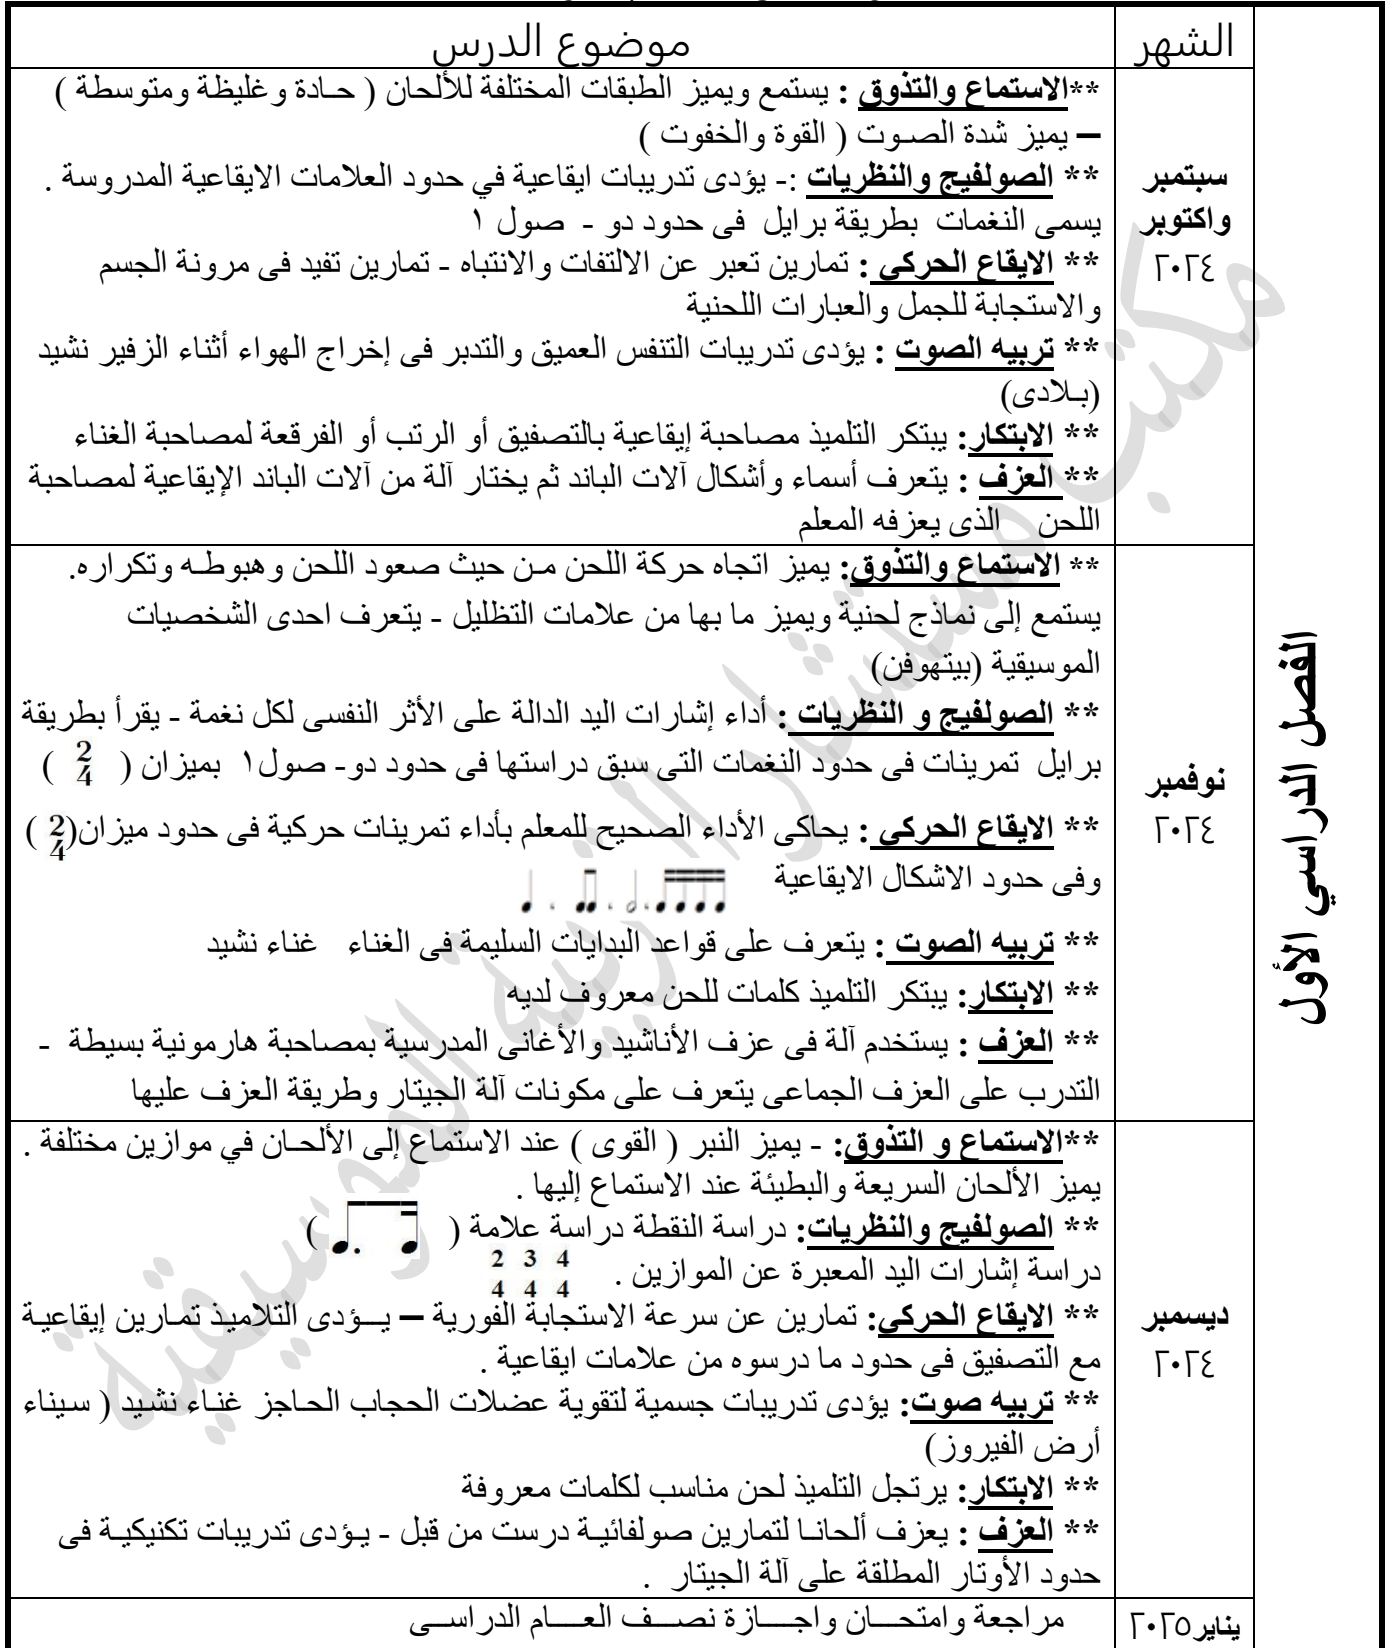 الشهر
موضوع الدرس
الفصل الدراسي الأول
سبتمبر
واكتوبر
٢٠٢٤
**الاستماع والتذوق : يستمع ويميز الطبقات المختلفة للألحان ( حـادة وغليظة ومتوسطة )
– يميز شدة الصـوت ( القوة والخفوت )
** الصولفيج والنظريات :- يؤدى تدريبات ايقاعية في حدود العلامات الايقاعية المدروسة .
يسمى النغمات بطريقة برايل فى حدود دو - صول ١
** الايقاع الحركي : تمارين تعبر عن الالتفات والانتباه - تمارين تفيد فى مرونة الجسم
والاستجابة للجمل والعبارات اللحنية
** تربيه الصوت : يؤدى تدريبات التنفس العميق والتدبر فى إخراج الهواء أثناء الزفير نشيد
(بـلادى)
** الابتكار: يبتكر التلميذ مصاحبة إيقاعية بالتصفيق أو الرتب أو الفرقعة لمصاحبة الغناء
** العزف : يتعرف أسماء وأشكال آلات الباند ثم يختار آلة من آلات الباند الإيقاعية لمصاحبة
اللحن الذى يعزفه المعلم
نوفمبر
٢٠٢٤
** الاستماع والتذوق: يميز اتجاه حركة اللحن مـن حيث صعود اللحن وهبوطـه وتكراره.
يستمع إلى نماذج لحنية ويميز ما بها من علامات التظليل - يتعرف احدى الشخصيات
الموسيقية (بيتهوفن)
** الصولفيج و النظريات : أداء إشارات اليد الدالة على الأثر النفسى لكل نغمة - يقرأ بطريقة
برايل تمرينات فى حدود النغمات التى سبق دراستها فى حدود دو- صول١ بميزان ( 2/4 )
** الايقاع الحركي : يحاكى الأداء الصحيح للمعلم بأداء تمرينات حركية فى حدود ميزان(2/4 )
وفى حدود الاشكال الايقاعية
** تربيه الصوت : يتعرف على قواعد البدايات السليمة فى الغناء غناء نشيد
** الابتكار: يبتكر التلميذ كلمات للحن معروف لديه
** العزف : يستخدم آلة فى عزف الأناشيد والأغانى المدرسية بمصاحبة هارمونية بسيطة -
التدرب على العزف الجماعى يتعرف على مكونات آلة الجيتار وطريقة العزف عليها
ديسمبر
٢٠٢٤
**الاستماع و التذوق: - يميز النبر ( القوى ) عند الاستماع إلى الألحـان في موازين مختلفة .
يميز الألحان السريعة والبطيئة عند الاستماع إليها .
** الصولفيج والنظريات: دراسة النقطة دراسة علامة ( )
دراسة إشارات اليد المعبرة عن الموازين . 2/4 3/4 4/4
** الايقاع الحركي: تمارين عن سرعة الاستجابة الفورية – يـــؤدى التلاميذ تمـارين إيقاعيـة
مع التصفيق فى حدود ما درسوه من علامات ايقاعية .
** تربيه صوت: يؤدى تدريبات جسمية لتقوية عضلات الحجاب الحـاجز غنـاء نشـيد ( سـيناء
أرض الفيروز)
** الابتكار: يرتجل التلميذ لحن مناسب لكلمات معروفة
** العزف : يعزف ألحانـا لتمارين صولفائيـة درست من قبل - يـؤدى تدريبات تكنيكيـة فى
حدود الأوتار المطلقة على آلة الجيتار .
يناير٢٠٢٥
مراجعة وامتحـــان واجـــازة نصـــف العـــام الدراســـى
مكتب مستشار التربية الموسيقية